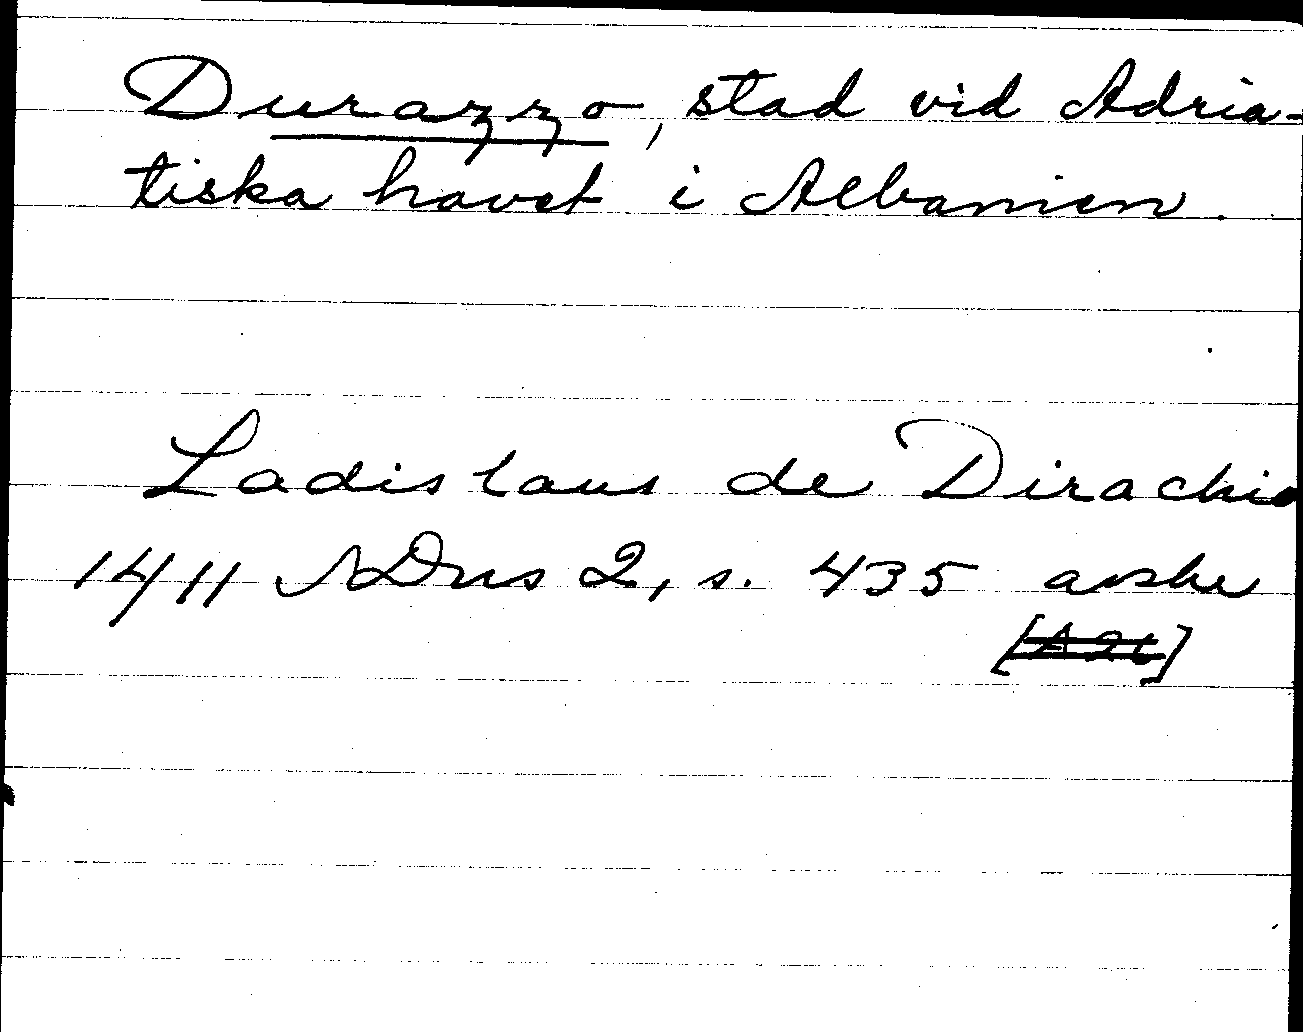 Durazzo, stad vid Adria-
tiska havet i Albanien.
Ladislaus de Dirachio
1411 SDns 2, s. 435 avskr
[A 26]